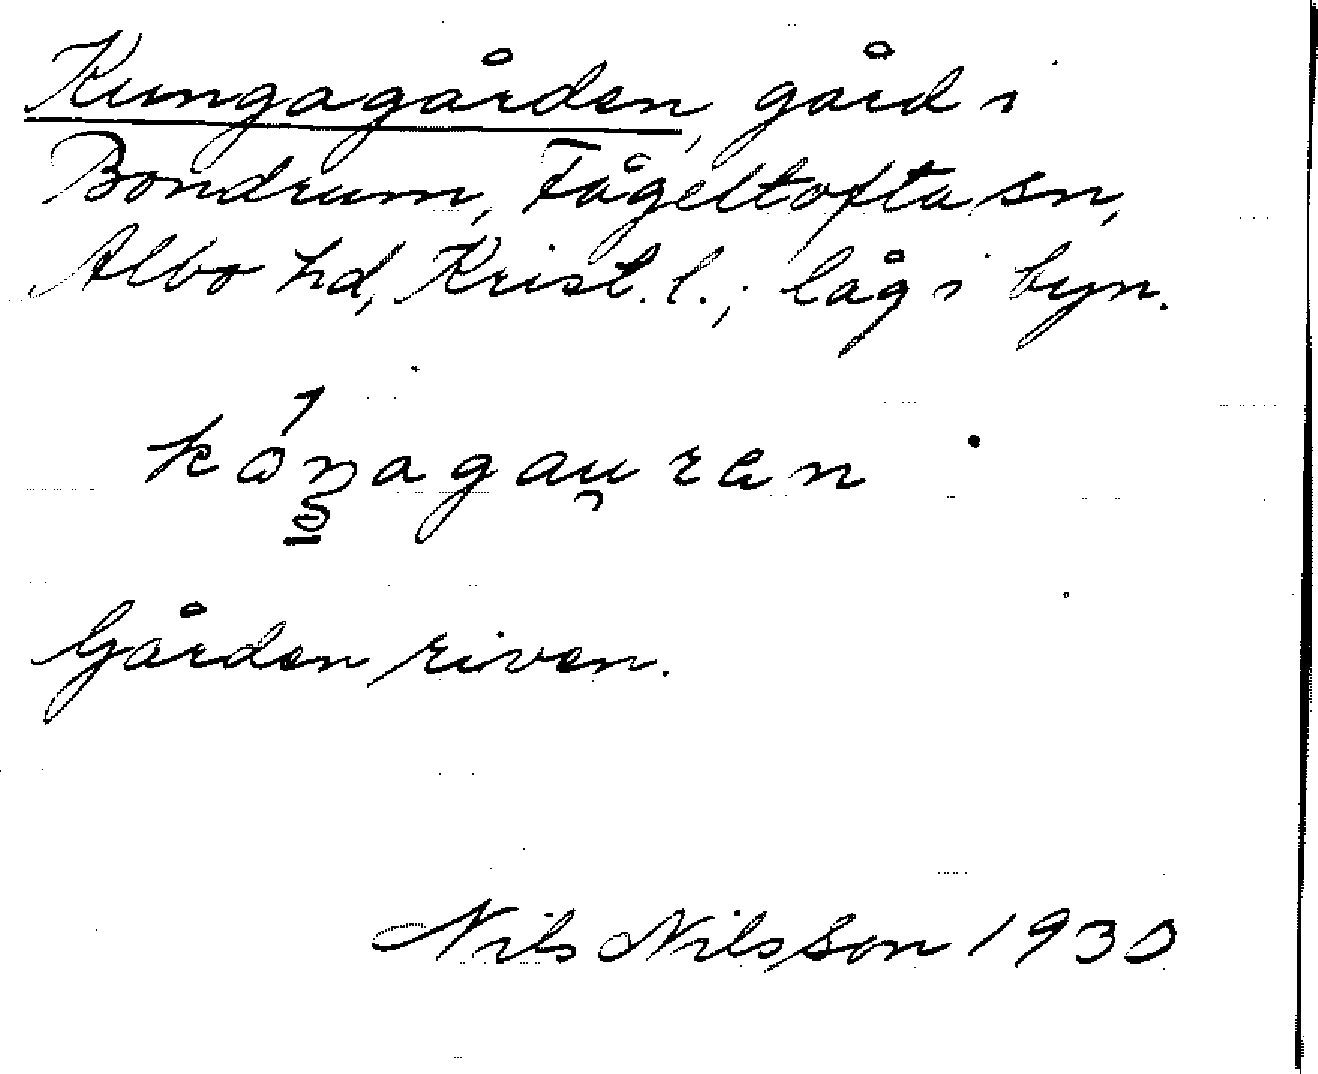 Kungagården, gård i
Bondrum, Fågeltofta sn,
Albo hd, Krist. l.; låg i byn.
Gården riven.
Nils Nilsson 1930